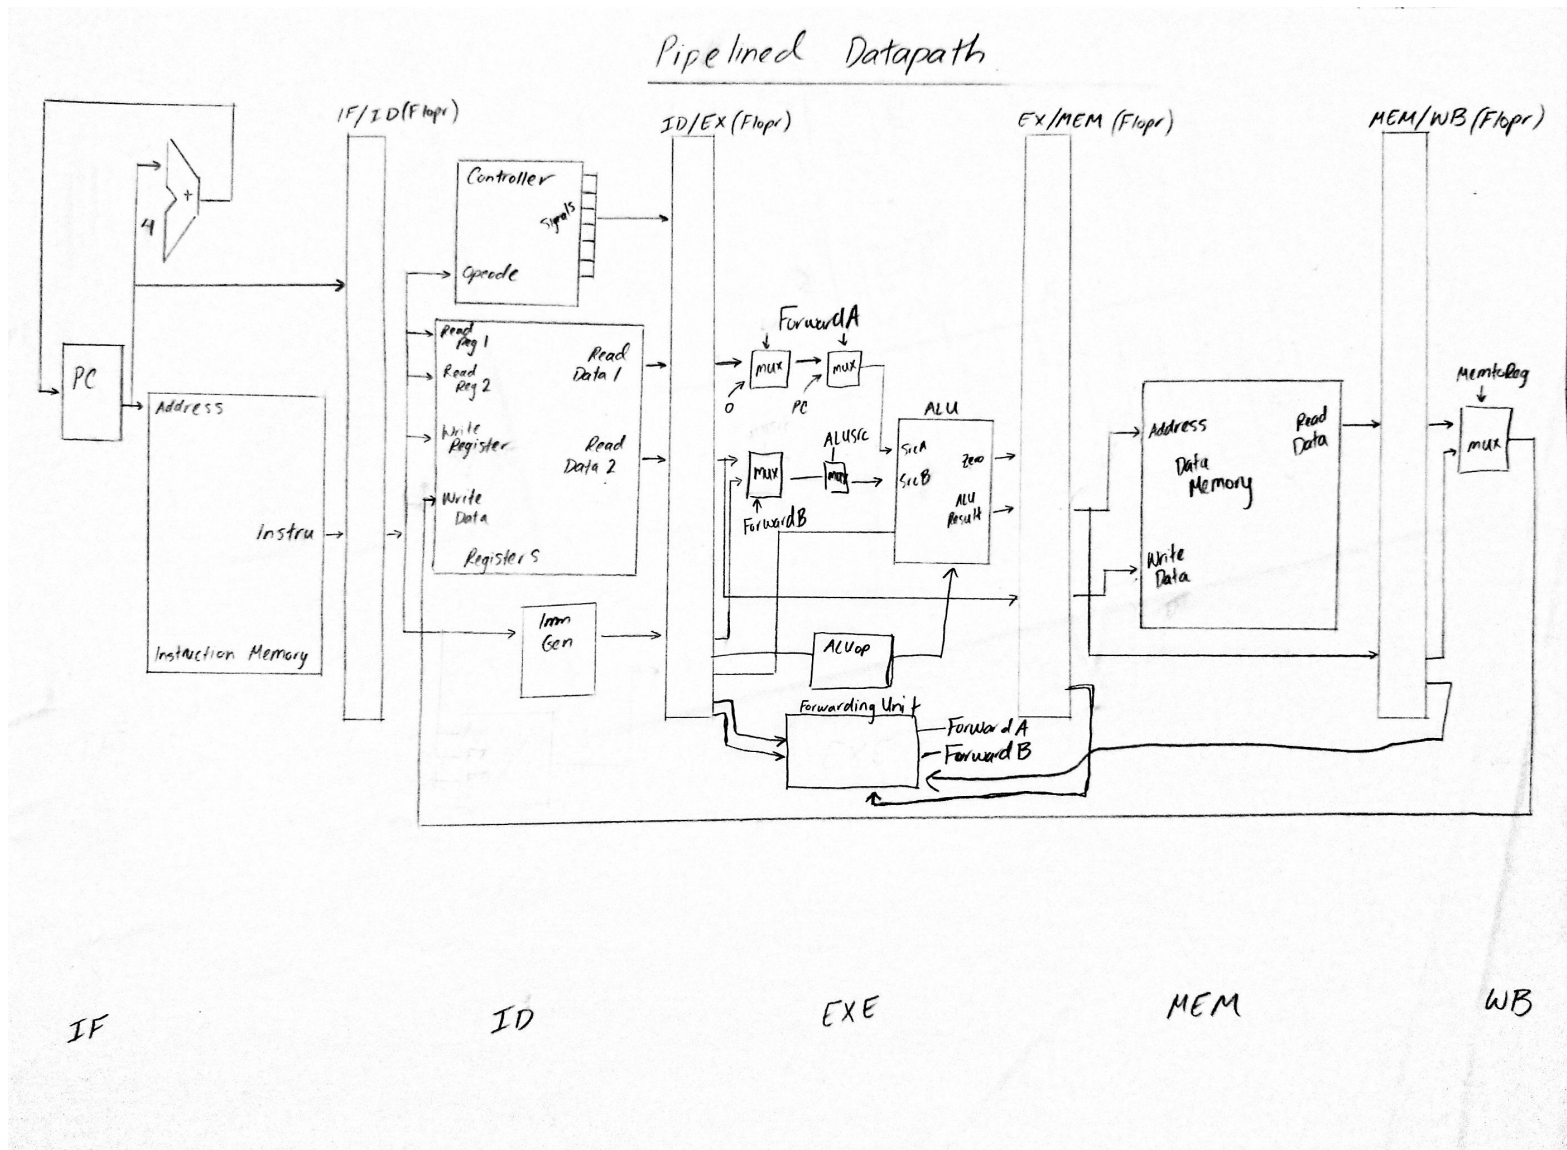 Pipelined Datapath
IF/ID(Flopr)
ID/EX(Flopr)
EX/MEM(Flopr)
MEM/WB(Flopr)
+
4
PC
Address
Instru
Instruction Memory
Controller
Signals
Opcode
Read
Reg 1
Read
Reg 2
Write
Register
Write
Data
Registers
Read
Data 1
Read
Data 2
Imm
Gen
ForwardA
mux
mux
0
PC
ALUSrc
mux
mux
ForwardB
ALU
SrcA
SrcB
Zero
ALU
Result
ALUop
Forwarding Unit
ForwardA
ForwardB
Address
Read
Data
Data
Memory
Write
Data
MemtoReg
mux
IF
ID
EXE
MEM
WB